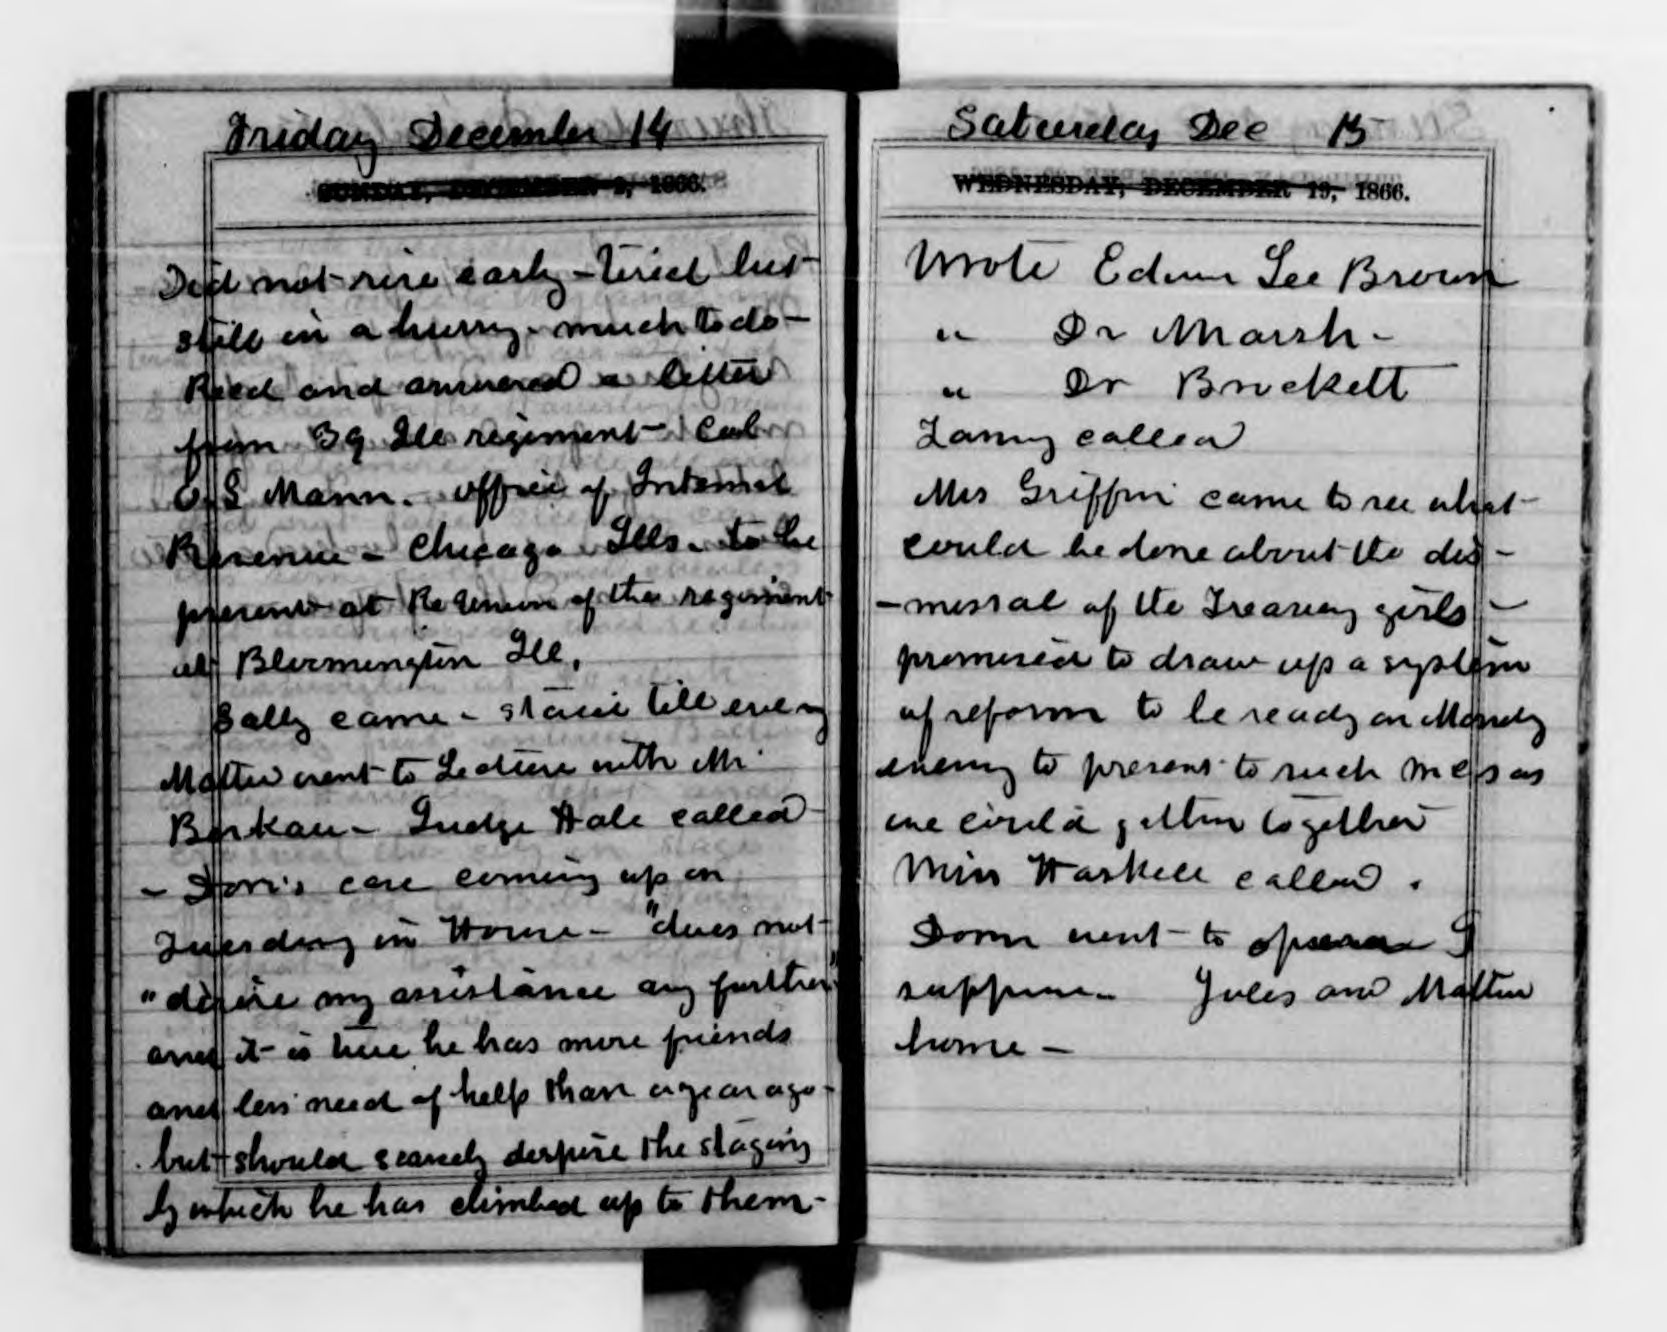 Friday December 14
SUNDAY, DECEMBER 2, 1866.
Did not rise early - tired but
still in a hurry - much to do -
Recd and answered a letter
from 39 Ill regiment - Col
O. L Mann. office of Internal
Revenue - Chicago Ills. to be
present at Re Union of the regiment
at Bloomington Ill,
Sally came - staid till eveng
Mattie went to Lecture with Mr
Judge Hale called -
- Dorr's case coming up on
Tuesday in House - "does not
"desire my assistance any further"
and it is true he has more friends
and less need of help than a year ago -
but should scarcely despise the staging
by which he has climbed up to them -
Saturday Dec 15
WEDNESDAY, DECEMBER 19, 1866.
Wrote Edwin Lee Brown
" Dr Marsh -
" Dr Brickett
Fanny called
Mrs Griffin came to see what
could be done about the dis -
- missal of the Treasury girls -
promised to draw up a system
of reform to be ready on Mondy
evening to present to such as
we could gather together
Miss Haskell called .
Dorr went to opera I
suppose - Jules and Mattie
home -